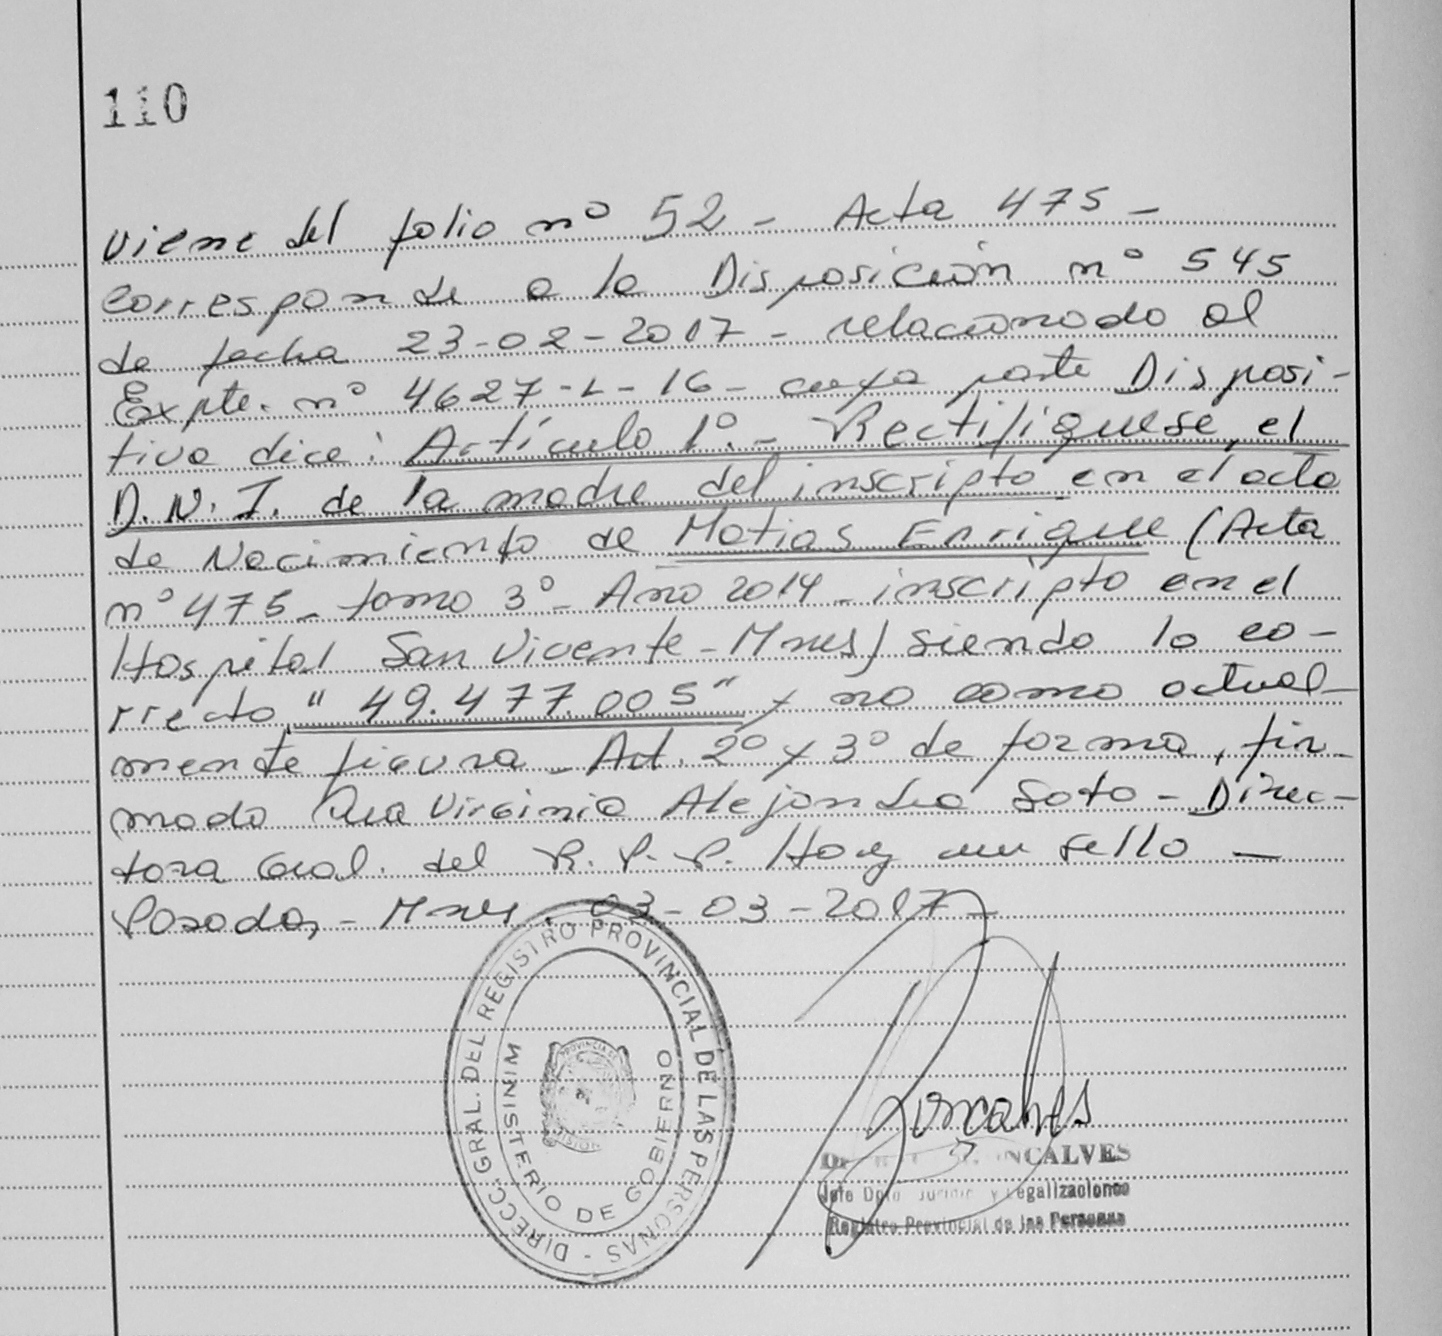 110
Viene del folio nº 52 - Acta 475 -
corresponde a la Disposición nº 545
de fecha 23-02-2017 - relacionado al
Expte. nº 4627-L-16 - cuya parte Disposi-
tiva dice: Artículo 1º.- Rectifíquese, el
D.N.I. de la madre del inscripto en el acta
de Nacimiento de Matias Enrique (Acta
nº 475 - tomo 3º - Año 2014 - inscripto en el
Hospital San Vicente - Mnes) siendo lo co-
rrecto "49.477.005" y no como actual-
mente figura - Art. 2º y 3º de forma, fir-
mado Virginia Alejandra Soto - Direc-
tora Gral. del R.P.P. Hay un sello -
Posadas, - Mnes. 03-03-2017 -
DIRECC. GRAL. DEL REGISTRO PROVINCIAL DE LAS PERSONAS -
MINISTERIO DE GOBIERNO
PROVINCIA DE
Goncalves
GONCALVES
Jefe Dpto y Legalizaciones
Registro Provincial de las Personas